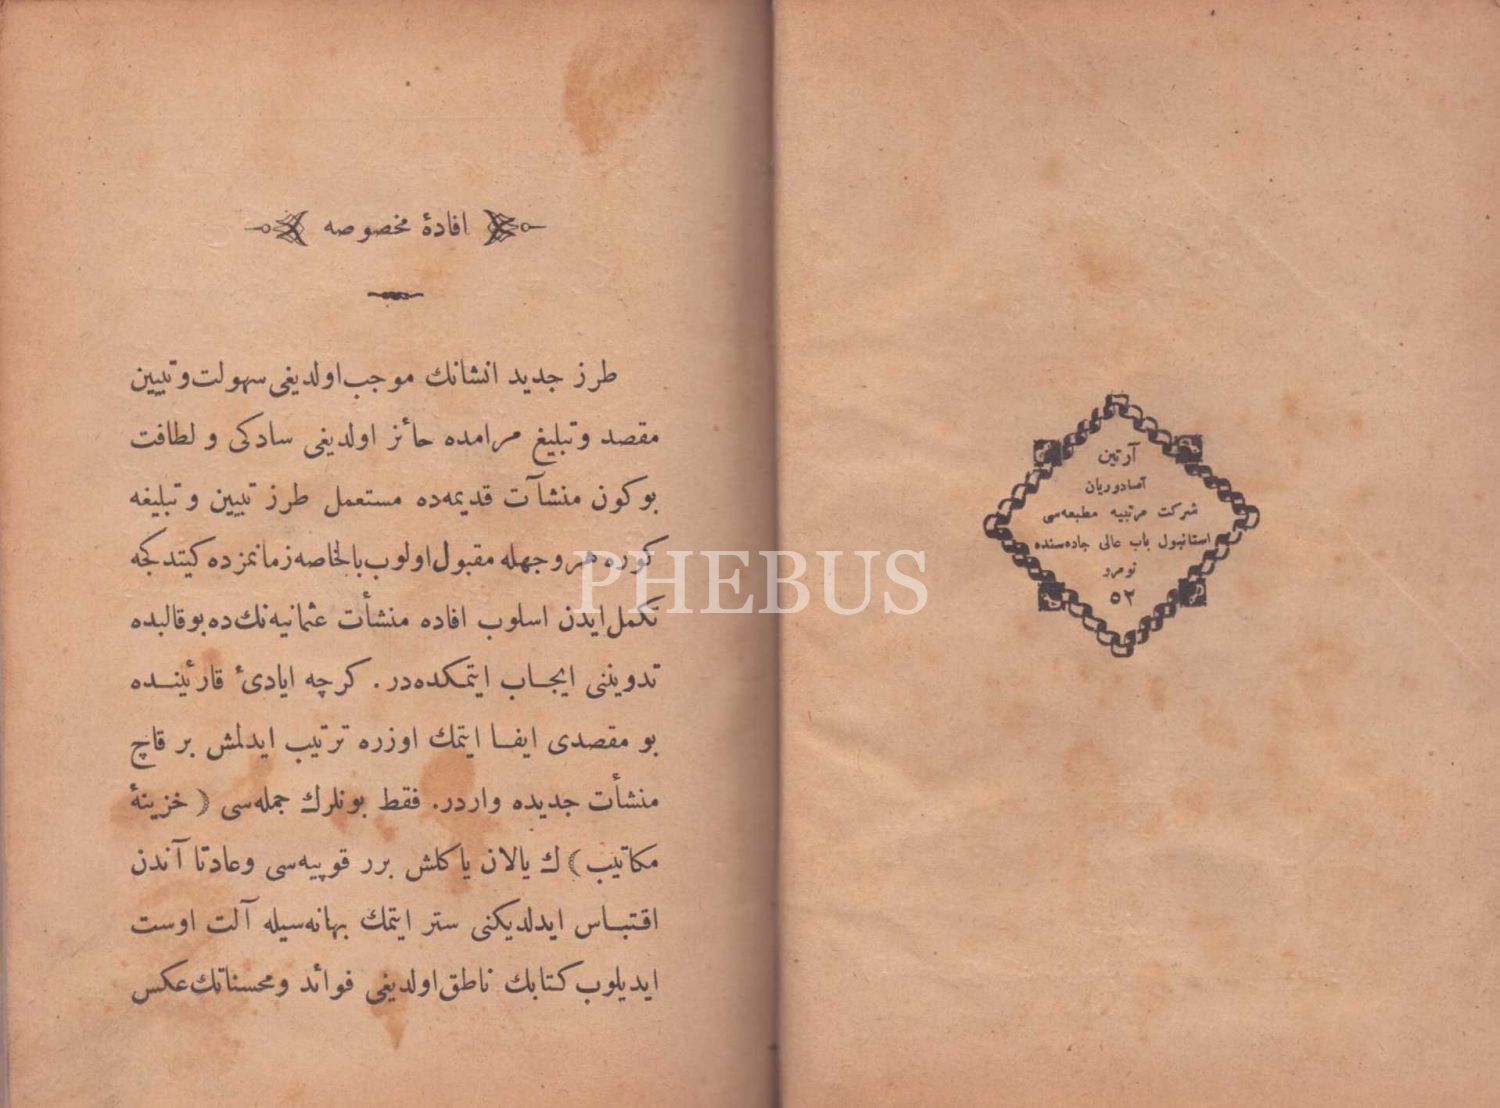 آرتين
آصادوريان
شركت مرتبيه مطبعه‌سى
استانبول باب عالى جاده‌سنده
نومرو
٥٢
افادۀ مخصوصه
طرز جديد انشانك موجب اولديغى سهولت و تبيين
مقصد و تبليغ مرامده حائز اولديغى سادكى و لطافت
بوكون منشآت قديمه‌ده مستعمل طرز تبيين و تبليغه
كوره هر وجهله مقبول اولوب بالخاصه زمانمزده كيتدكجه
تكمل ايدن اسلوب افاده منشأت عثمانيه‌نك ده بو قالبده
تدويننى ايجاب ايتمكده‌در. كرچه ايادئ قارئينده
بو مقصدى ايفا ايتمك اوزره ترتيب ايدلمش بر قاچ
منشأت جديده واردر. فقط بونلرك جمله‌سى (خزينۀ
مكاتيب) ك يالان ياكلش برر قوپيه‌سى وعادتا آندن
اقتباس ايدلديكنى ستر ايتمك بهانه‌سيله آلت اوست
ايديلوب كتابك ناطق اولديغى فوائد و محسناتك عكس
PHEBUS